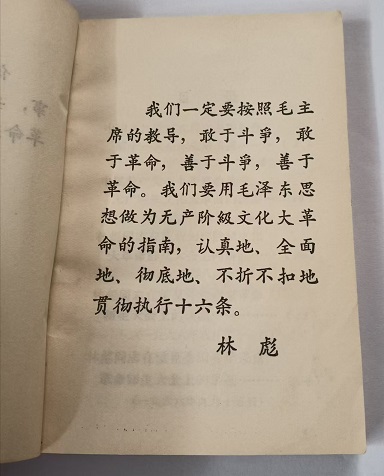 我们一定要按照毛主
席的教导，敢于斗争，敢
于革命，善于斗争，善于
革命。我们要用毛泽东思
想做为无产阶級文化大革
命的指南，认真地、全面
地、彻底地、不折不扣地
贯彻执行十六条。
林彪